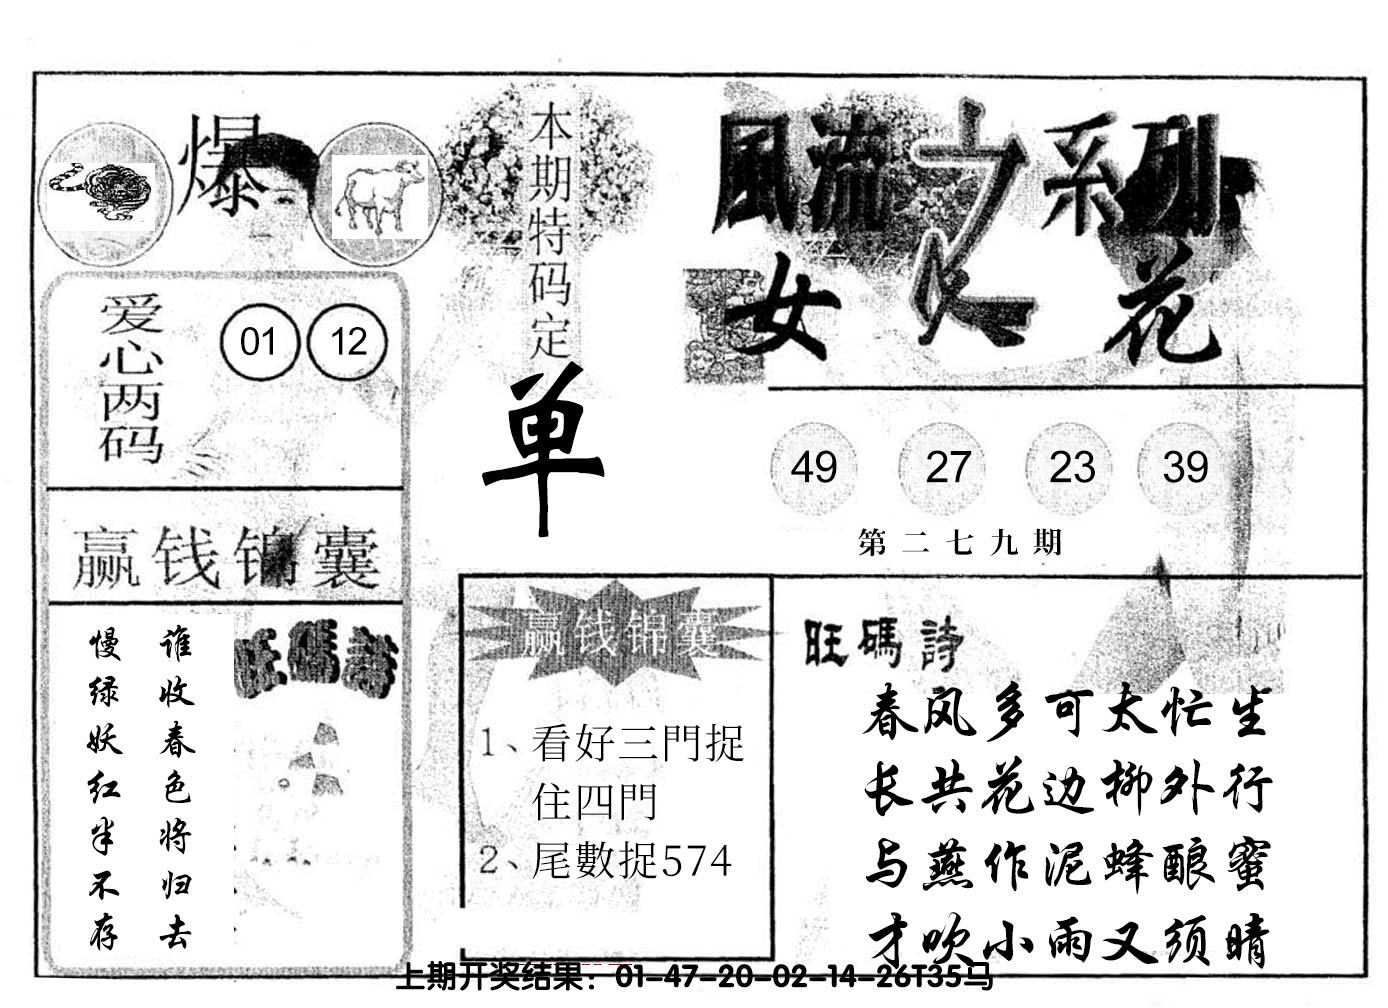 爆
爱心两码
01 12
赢钱锦囊
谁收春色将归去
慢绿妖红半不存
旺碼詩
本期特码定
单
風流之系列
女人花
49 27 23 39
第二七九期
赢钱锦囊
1、看好三門捉
住四門
2、尾數捉574
旺碼詩
春风多可太忙生
长共花边柳外行
与燕作泥蜂酿蜜
才吹小雨又须晴
上期开奖结果：01-47-20-02-14-26T35马